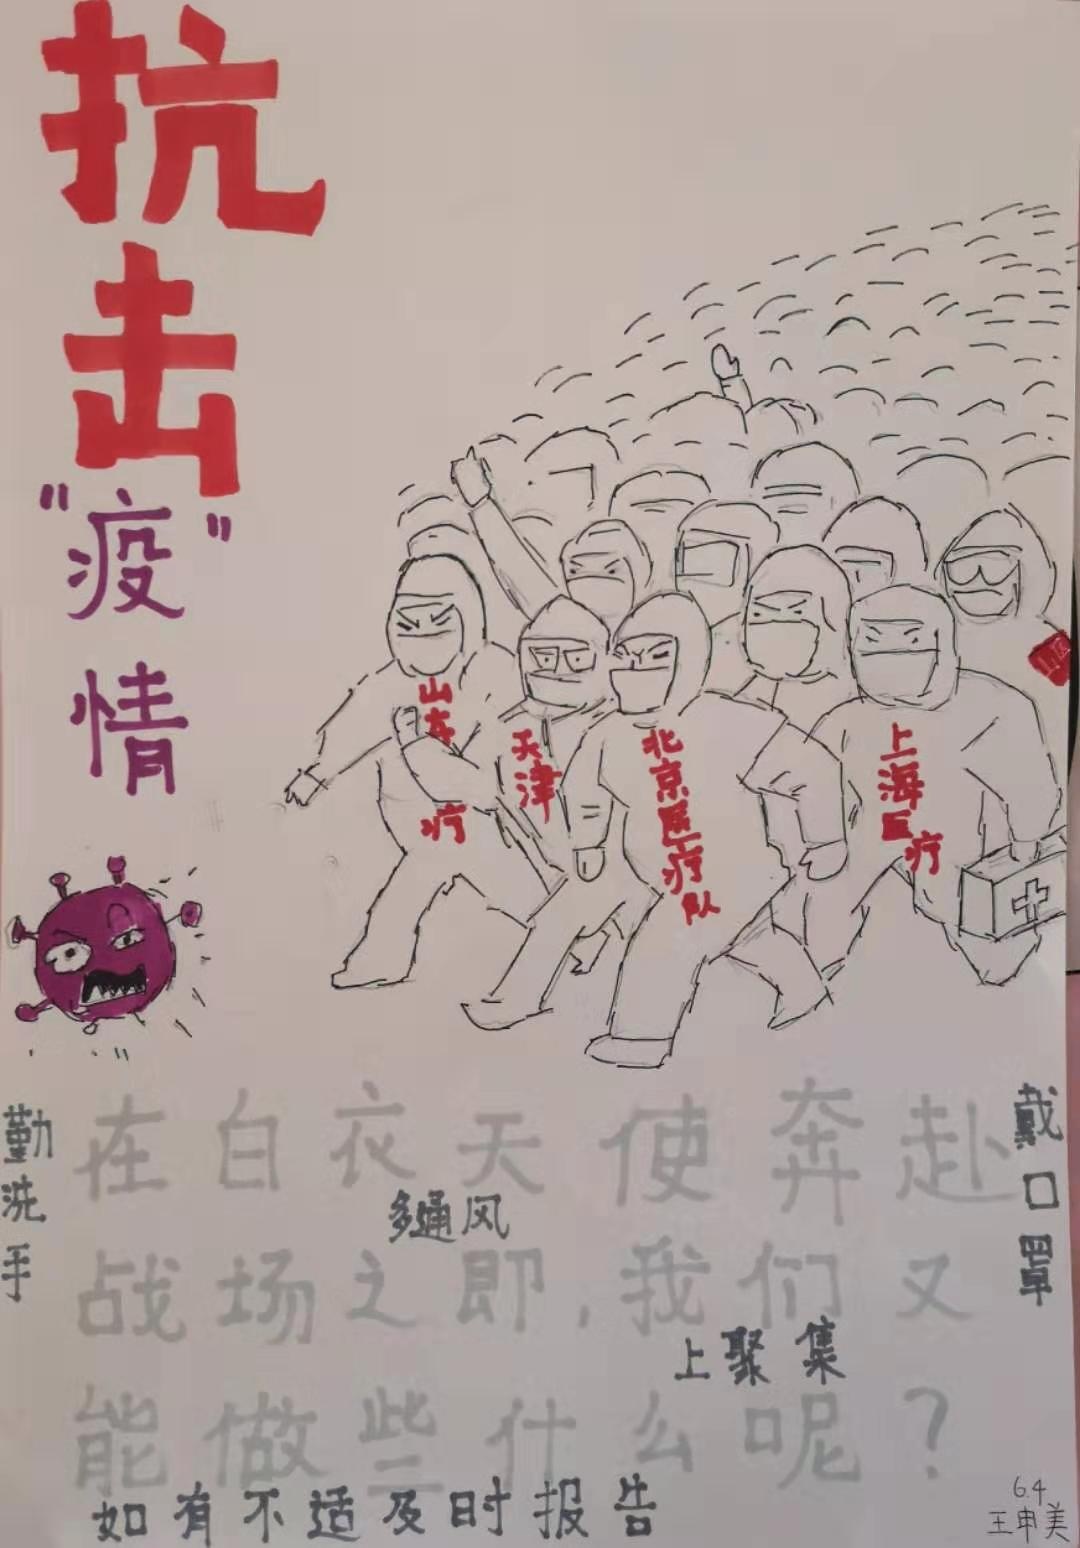 抗击
"疫"情
山东
疗
天津
北京医疗队
上海医疗
在白衣天使奔赴
战场之即,我们又
能做些什么呢?
勤洗手
多通风
戴口罩
上聚集
如有不适及时报告
6.4
王申美